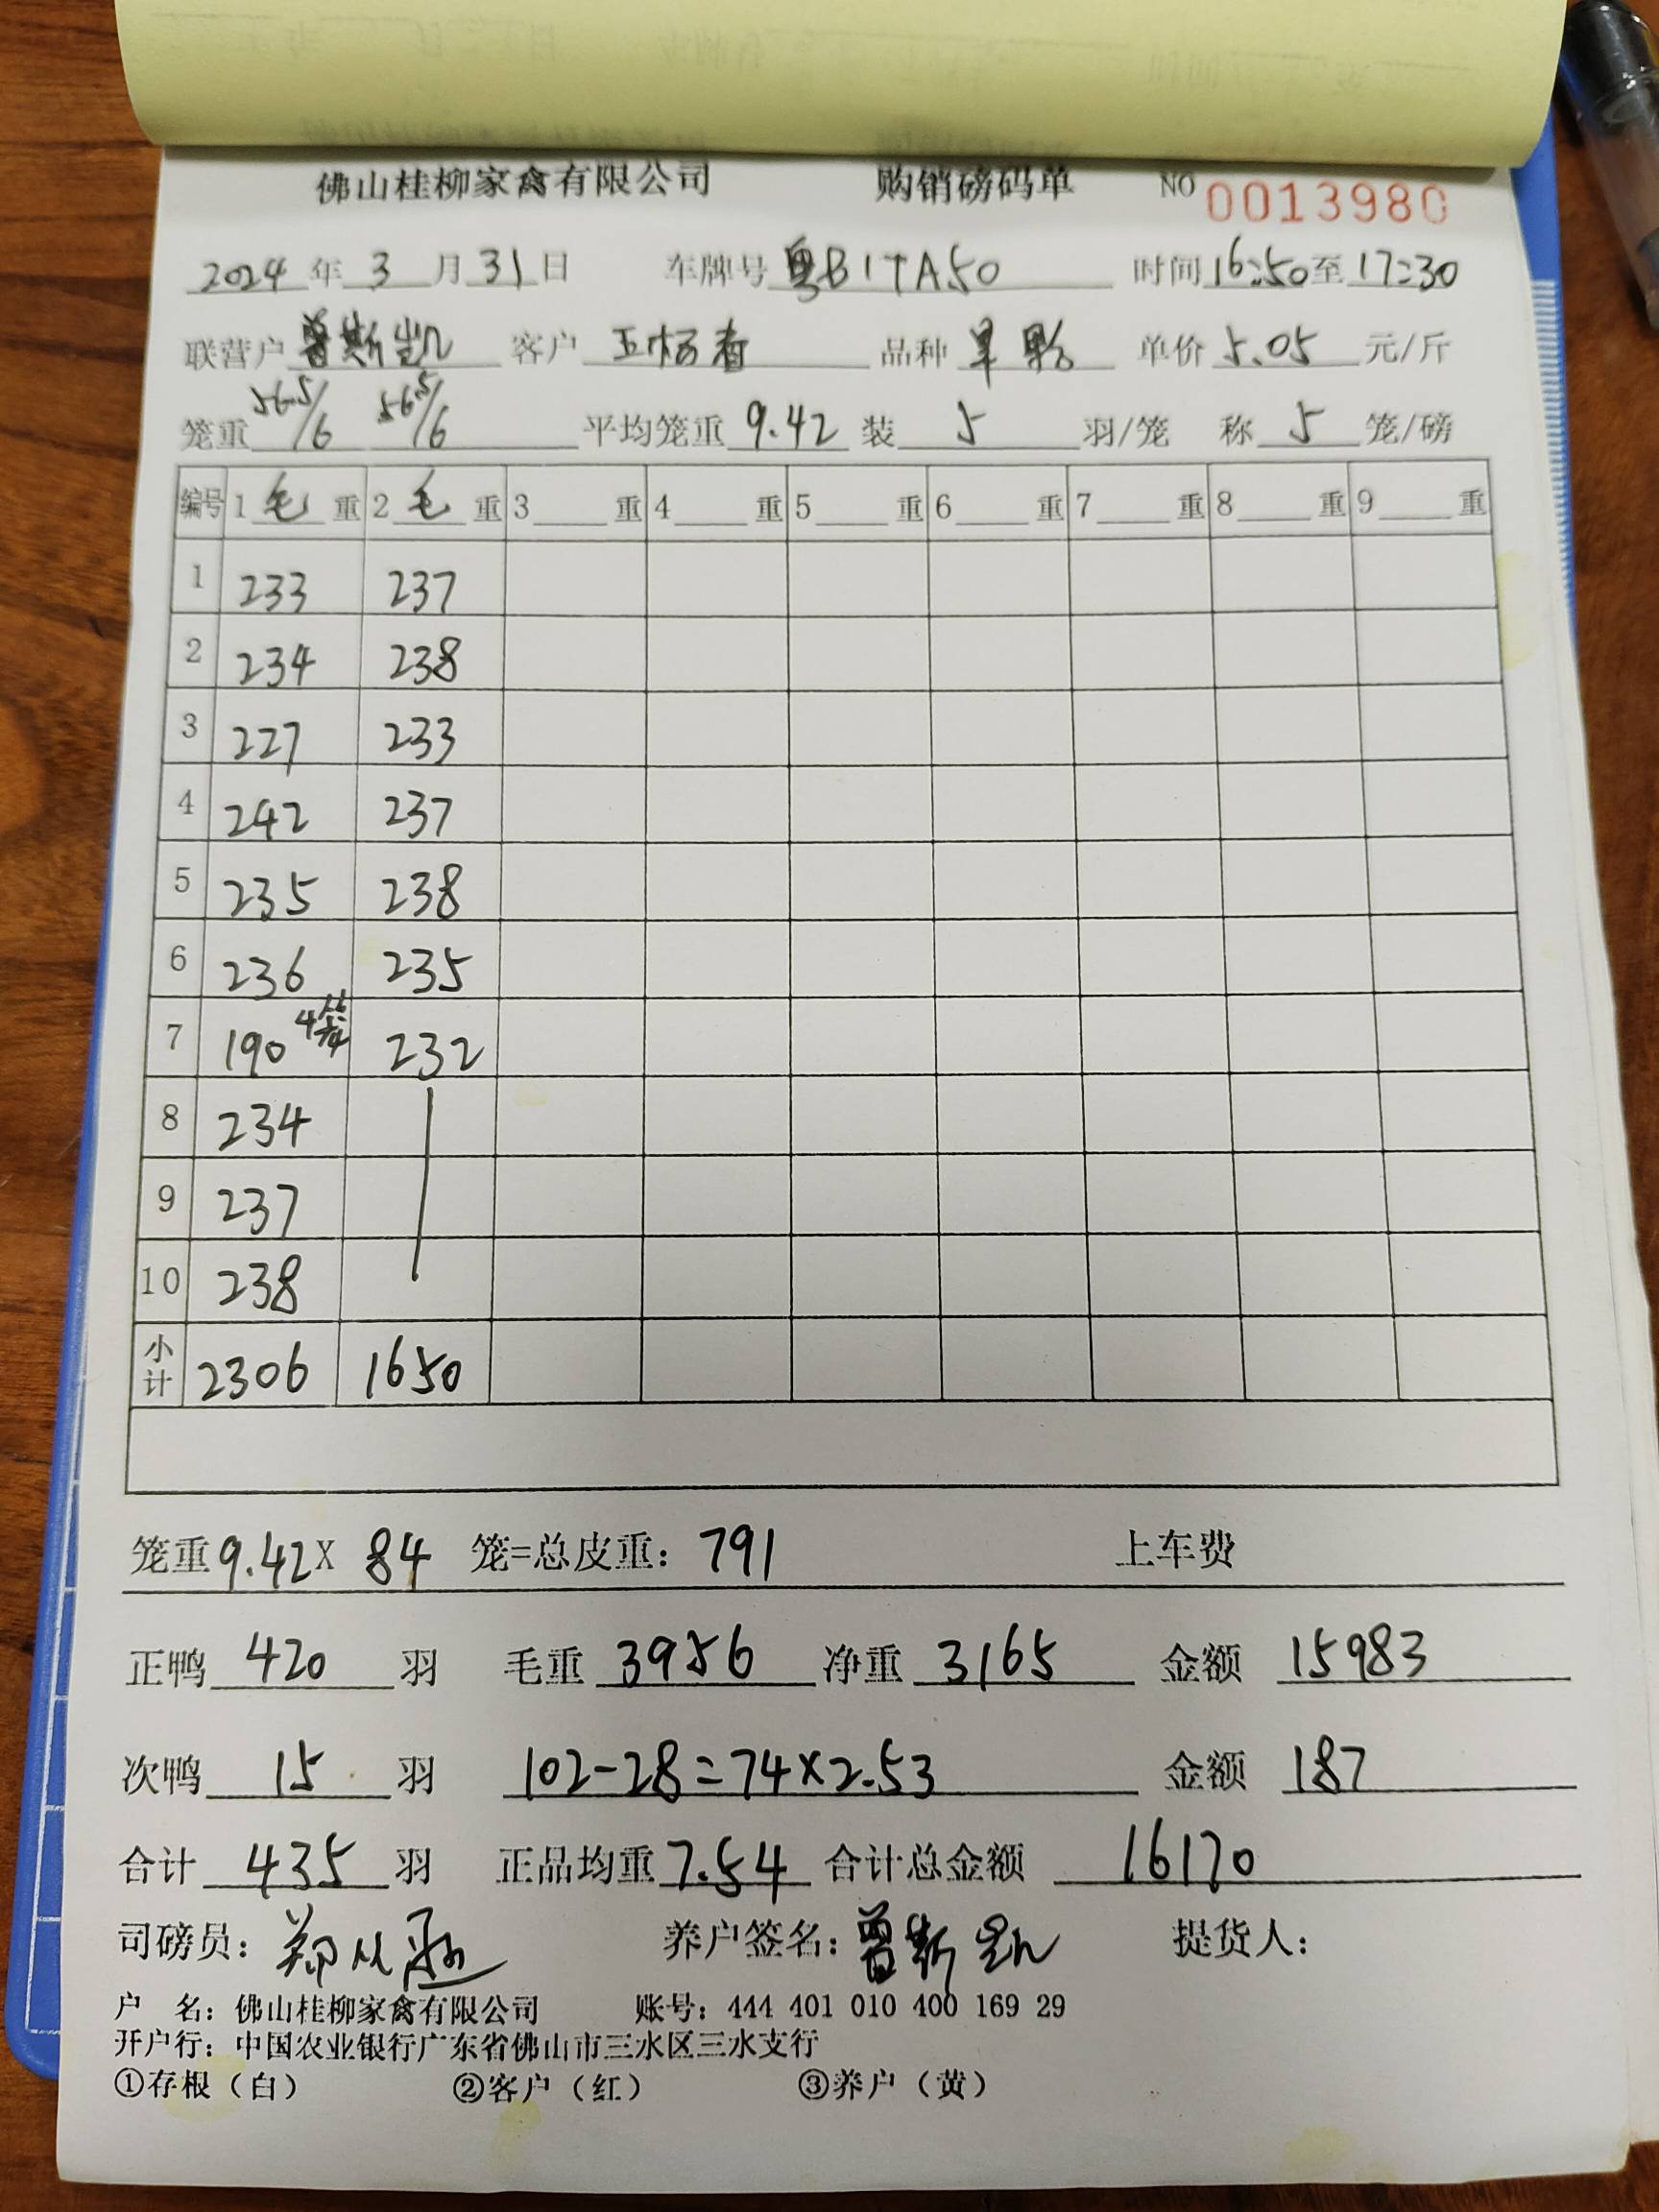 佛山桂柳家禽有限公司 购销磅码单 NO 0013980
2024 年 3 月 31 日 车牌号 粤B1TA50 时间 16:50 至 17:30
联营户 曾斯凯 客户 品种 单价 5.05 元/斤
笼重 56.5/6 56.5/6 平均笼重 9.42 装 5 羽/笼 称 5 笼/磅
编号 1 毛 重 2 毛 重 3 重 4 重 5 重 6 重 7 重 8 重 9 重
1 233 237
2 234 238
3 227 233
4 242 237
5 235 238
6 236 235
7 190 4笼 232
8 234
9 237
10 238
小计 2306 1650
笼重 9.42 X 84 笼=总皮重: 791 上车费
正鸭 420 羽 毛重 3956 净重 3165 金额 15983
次鸭 15 羽 102-28=74×2.53 金额 187
合计 435 羽 正品均重 7.54 合计总金额 16170
司磅员: 养户签名: 曾斯凯 提货人:
户 名: 佛山桂柳家禽有限公司 账号: 444 401 010 400 169 29
开户行: 中国农业银行广东省佛山市三水区三水支行
①存根（白） ②客户（红） ③养户（黄）